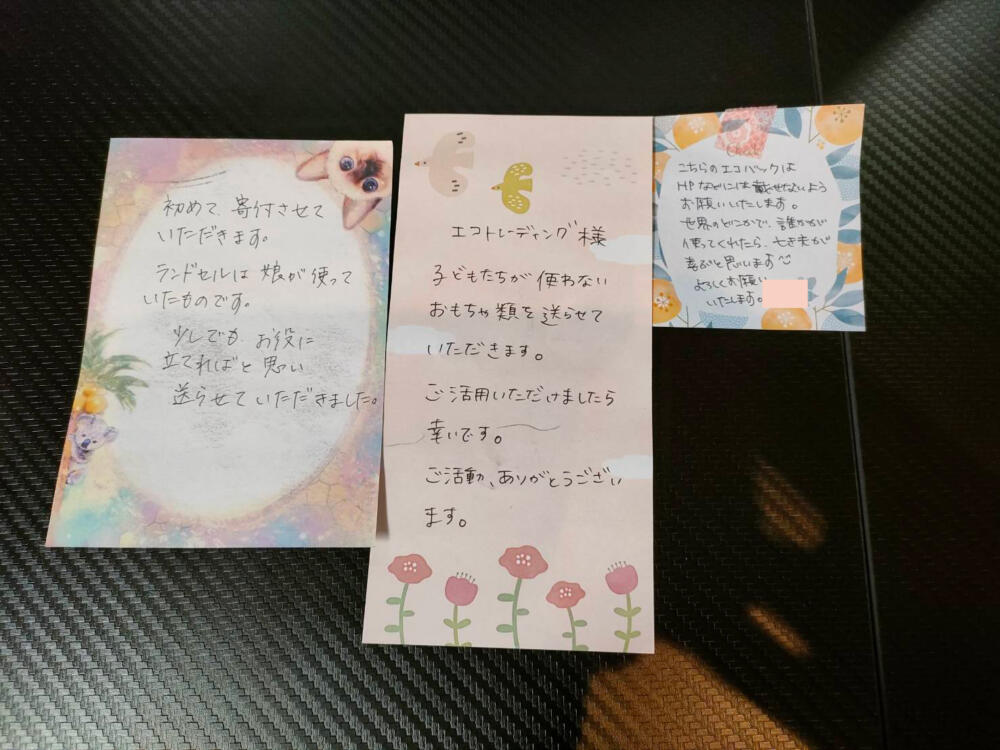 初めて、寄付させて
いただきます。
ランドセルは 娘が使って
いたものです。
少しでも、お役に
立てればと 思い
送らせて いただきました。
エコトレーディング 様
子どもたちが 使わない
おもちゃ類を 送らせて
いただきます。
ご活用いただけましたら
幸いです。
ご活動、ありがとうござい
ます。
こちらのエコバックは
HPなどには 載せないよう
お願いいたします。
世界のどこかで、誰かが
使ってくれたら、亡き夫が
喜ぶと思います
よろしくお願い
いたします。